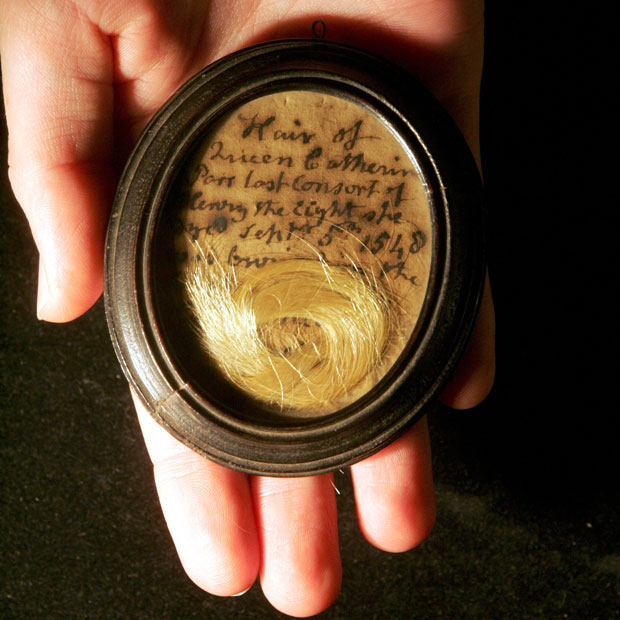 Hair of
Queen Catherin
Parr Last Consort of
Henry the Eight she
dyed Septr 5th 1548
was the